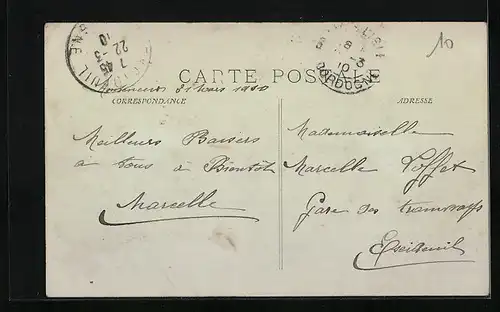 10
22 -3
10
DORDOGNE
CARTE POSTALE
CORRESPONDANCE
ADRESSE
21 Mars 1910
Meilleurs Baisers
à tous à Bientôt
Marcelle
Mademoiselle
Marcelle
Gare des tramways
Excideuil